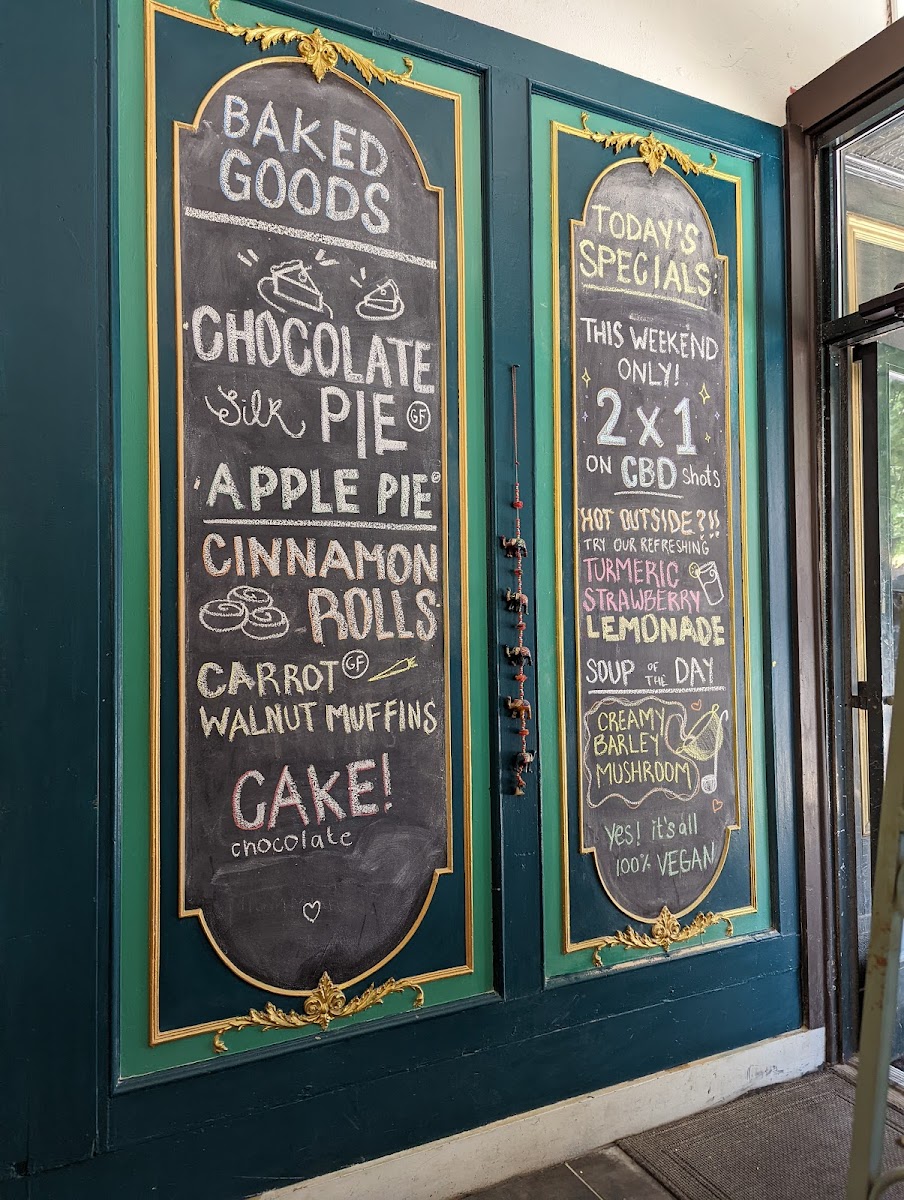 BAKED
GOODS
CHOCOLATE
Silk PIE GF
APPLE PIE
CINNAMON
ROLLS
CARROT GF
WALNUT MUFFINS
CAKE!
chocolate
TODAY'S
SPECIALS:
THIS WEEKEND
ONLY!
2 x 1
ON CBD shots
HOT OUTSIDE?!!
TRY OUR REFRESHING
TURMERIC
STRAWBERRY
LEMONADE
SOUP OF THE DAY
CREAMY
BARLEY
MUSHROOM
Yes! it's all
100% VEGAN